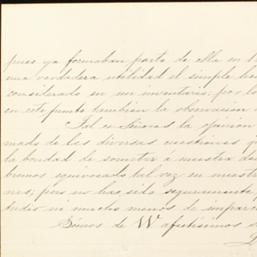 pues ya formaban parte de ella en 1
una verdadera utilidad el simple hec
considerado en mi inventario; por lo
en este punto tambien la observacion
Tal es Señores la opinion
mado de las diversas cuestiones q
la bondad de someter á nuestra de
bremos equivocado tal vez en nuestr
nes; pero no has sido seguramente
tudio ni mucho menos de imparci
Somos de W afectisimos